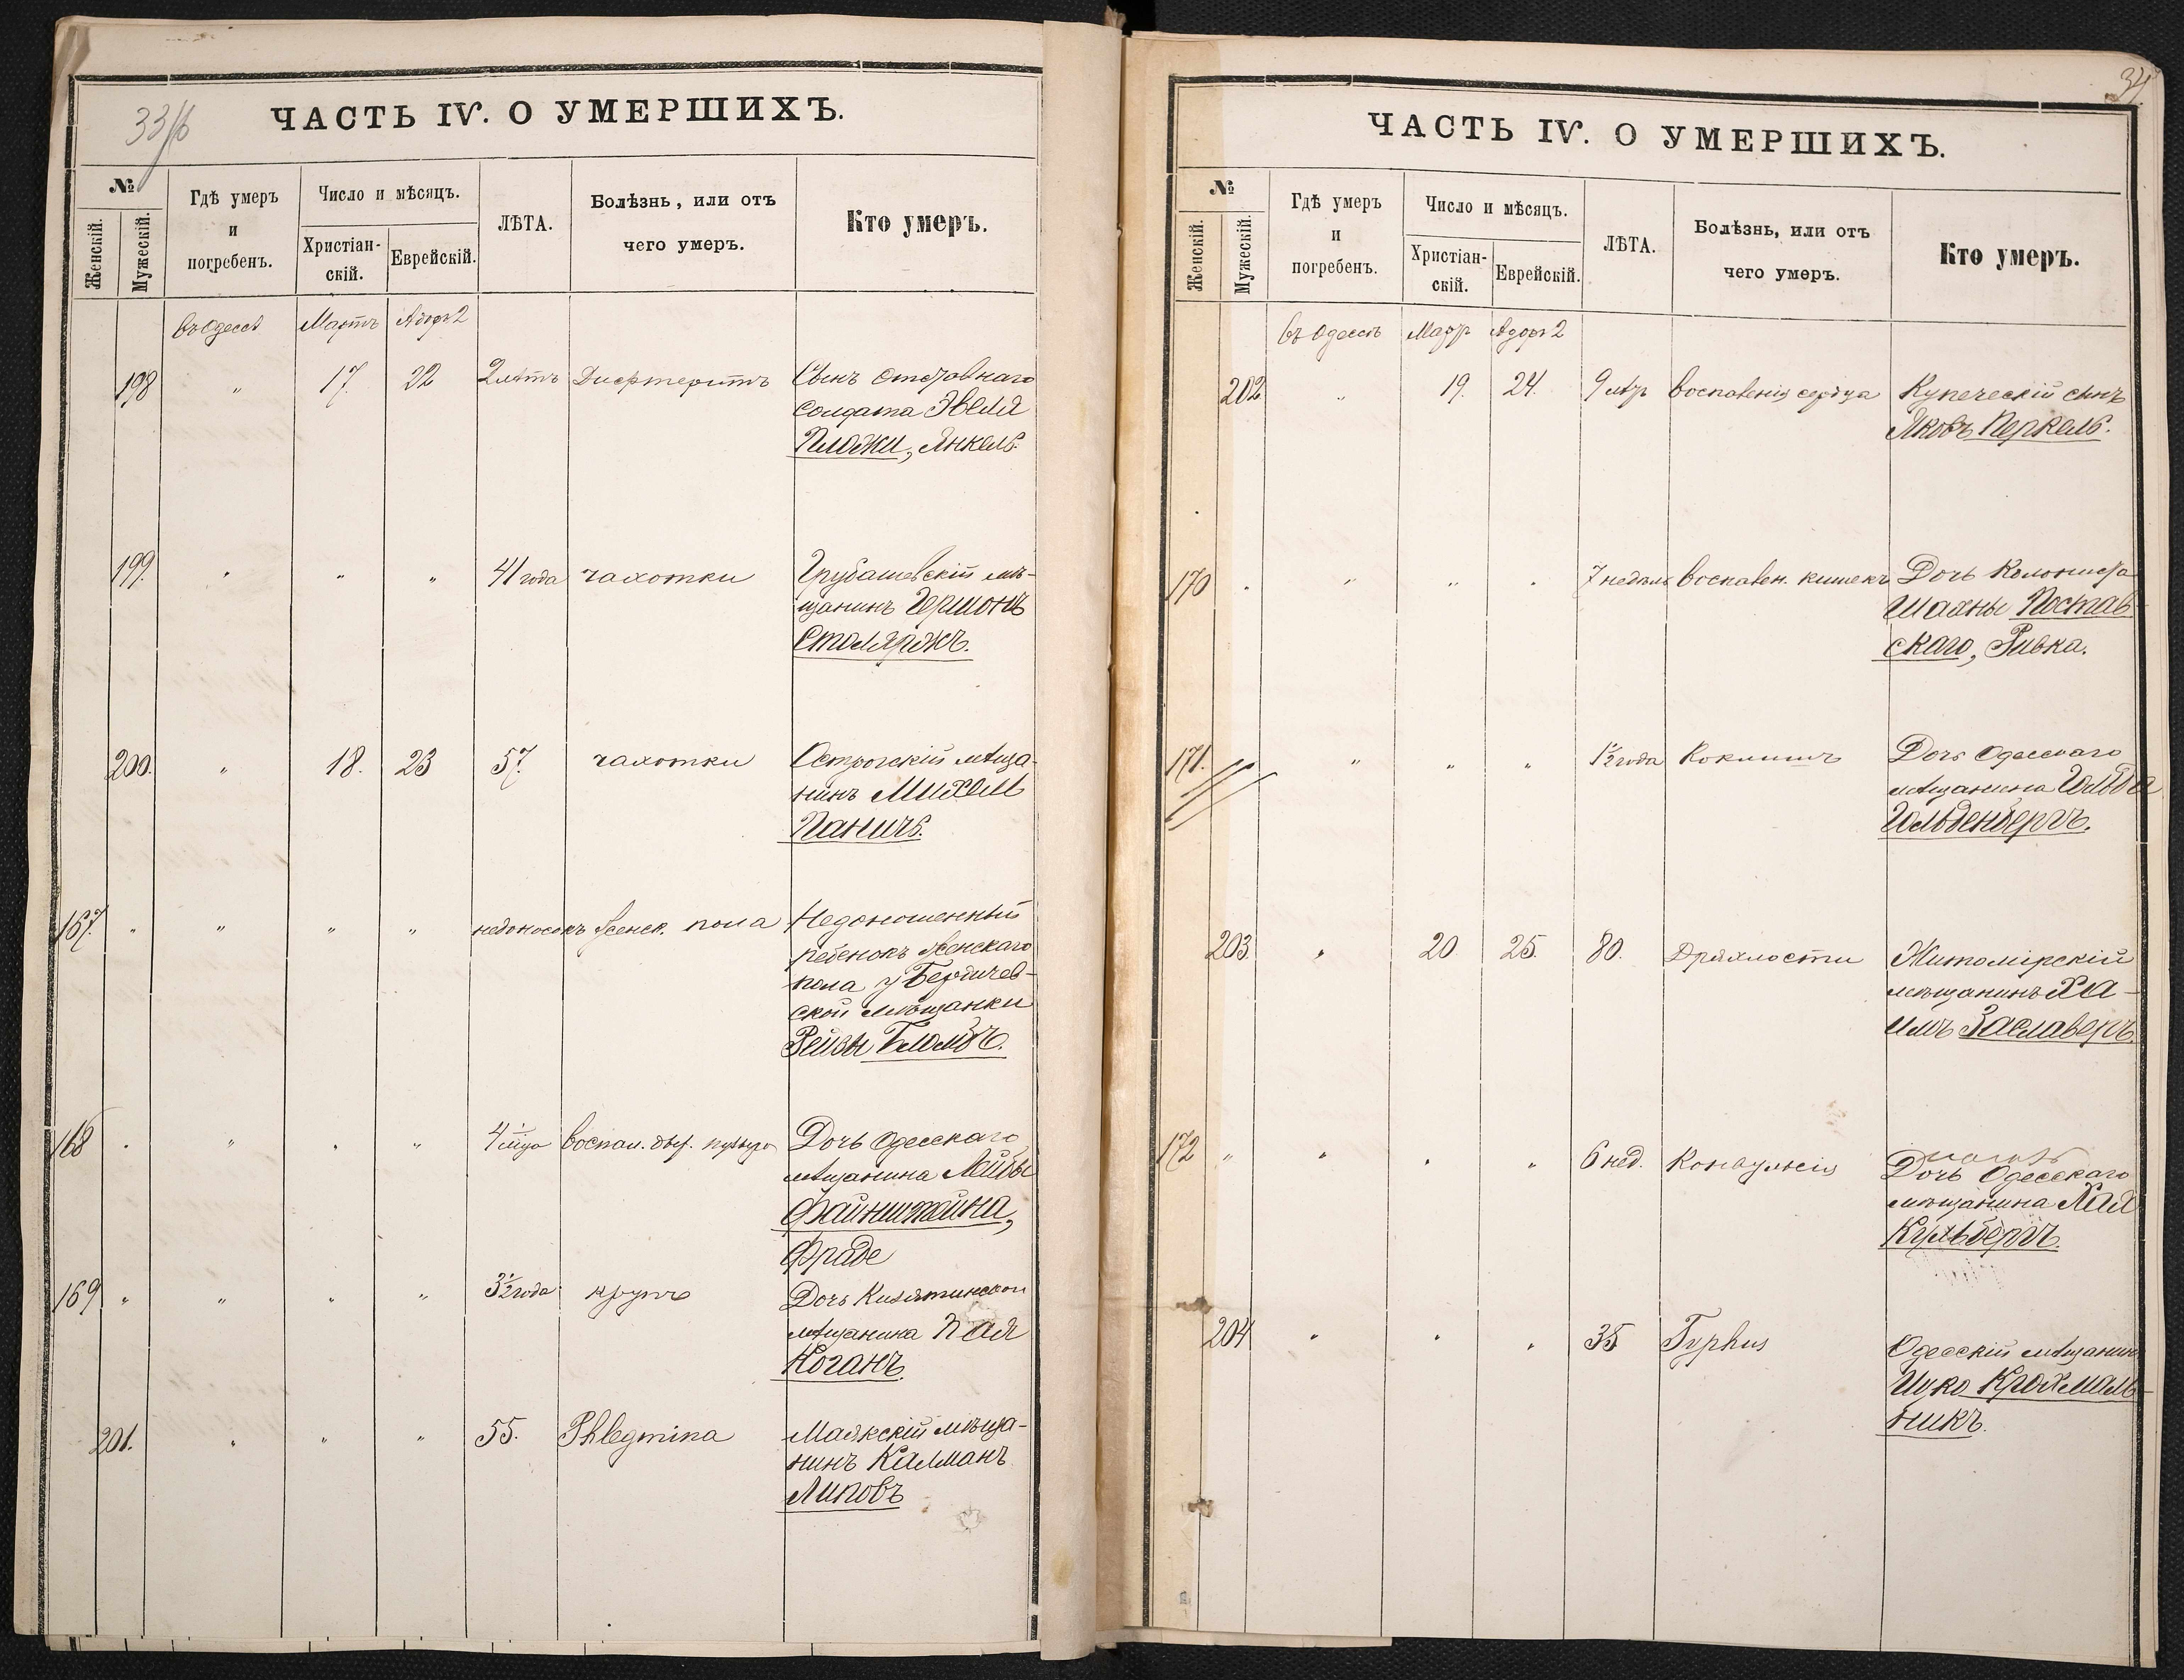 33/б
ЧАСТЬ IV. О УМЕРШИХЪ.
№
Женскій.
Мужескій.
Гдѣ умеръ
и
погребенъ.
Число и мѣсяцъ.
Христіан-
скій.
Еврейскій.
ЛѢТА.
Болѣзнь, или отъ
чего умеръ.
Кто умеръ.
въ Одессѣ Мартъ Адоръ 2
198 " 17. 22 2 лѣтъ Дифтеритъ Сынъ отставнаго
солдата Эвеля
Плажи, Янкель.
199. " " " 41 года чахотки Грубашевскій мѣ-
щанинъ Гершонъ
Столяржъ.
200. " 18. 23 57. чахотки Острогскій мѣща-
нинъ Михель
Паничъ.
167. " " " " недоносокъ женск. пола Недоношенный
ребенокъ женскаго
пола у Бердичев-
ской мѣщанки
Рейзы
168 " " " " воспал. Дочь Одесскаго
мѣщанина Лейбы
Файнштейна,
Фраде
169 " " " " 3½ года крупъ Дочь
мѣщанина
Коганъ.
201. " " " 55. Phlegmina Маякскій мѣща-
нинъ Калманъ
Липовъ
34
ЧАСТЬ IV. О УМЕРШИХЪ.
№
Женскій.
Мужескій.
Гдѣ умеръ
и
погребенъ.
Число и мѣсяцъ.
Христіан-
скій.
Еврейскій.
ЛѢТА.
Болѣзнь, или отъ
чего умеръ.
Кто умеръ.
въ Одессѣ Мартъ Адоръ 2
202. " 19. 24. 9 лѣтъ воспаленія сердца Купеческій сынъ
Яковъ Перкель.
170 " " " " 7 недѣль воспален. кишекъ Дочь Колониста
Шахны Постав-
скаго, Ривка.
171. " " " 1½ года Коклюшъ Дочь Одесскаго
мѣщанина Гольда
Гольденбергъ.
203. " 20. 25. 80. Дряхлости Житомірскій
мѣщанинъ Ха-
имъ Заславеръ.
172 " " " " 6 нед. Конвульсія Дочь Одесскаго
мѣщанина Хая
Кульбергъ.
204 " " " 35 Typhus Одесскій мѣщанинъ
Ицко Крохмаль-
никъ.